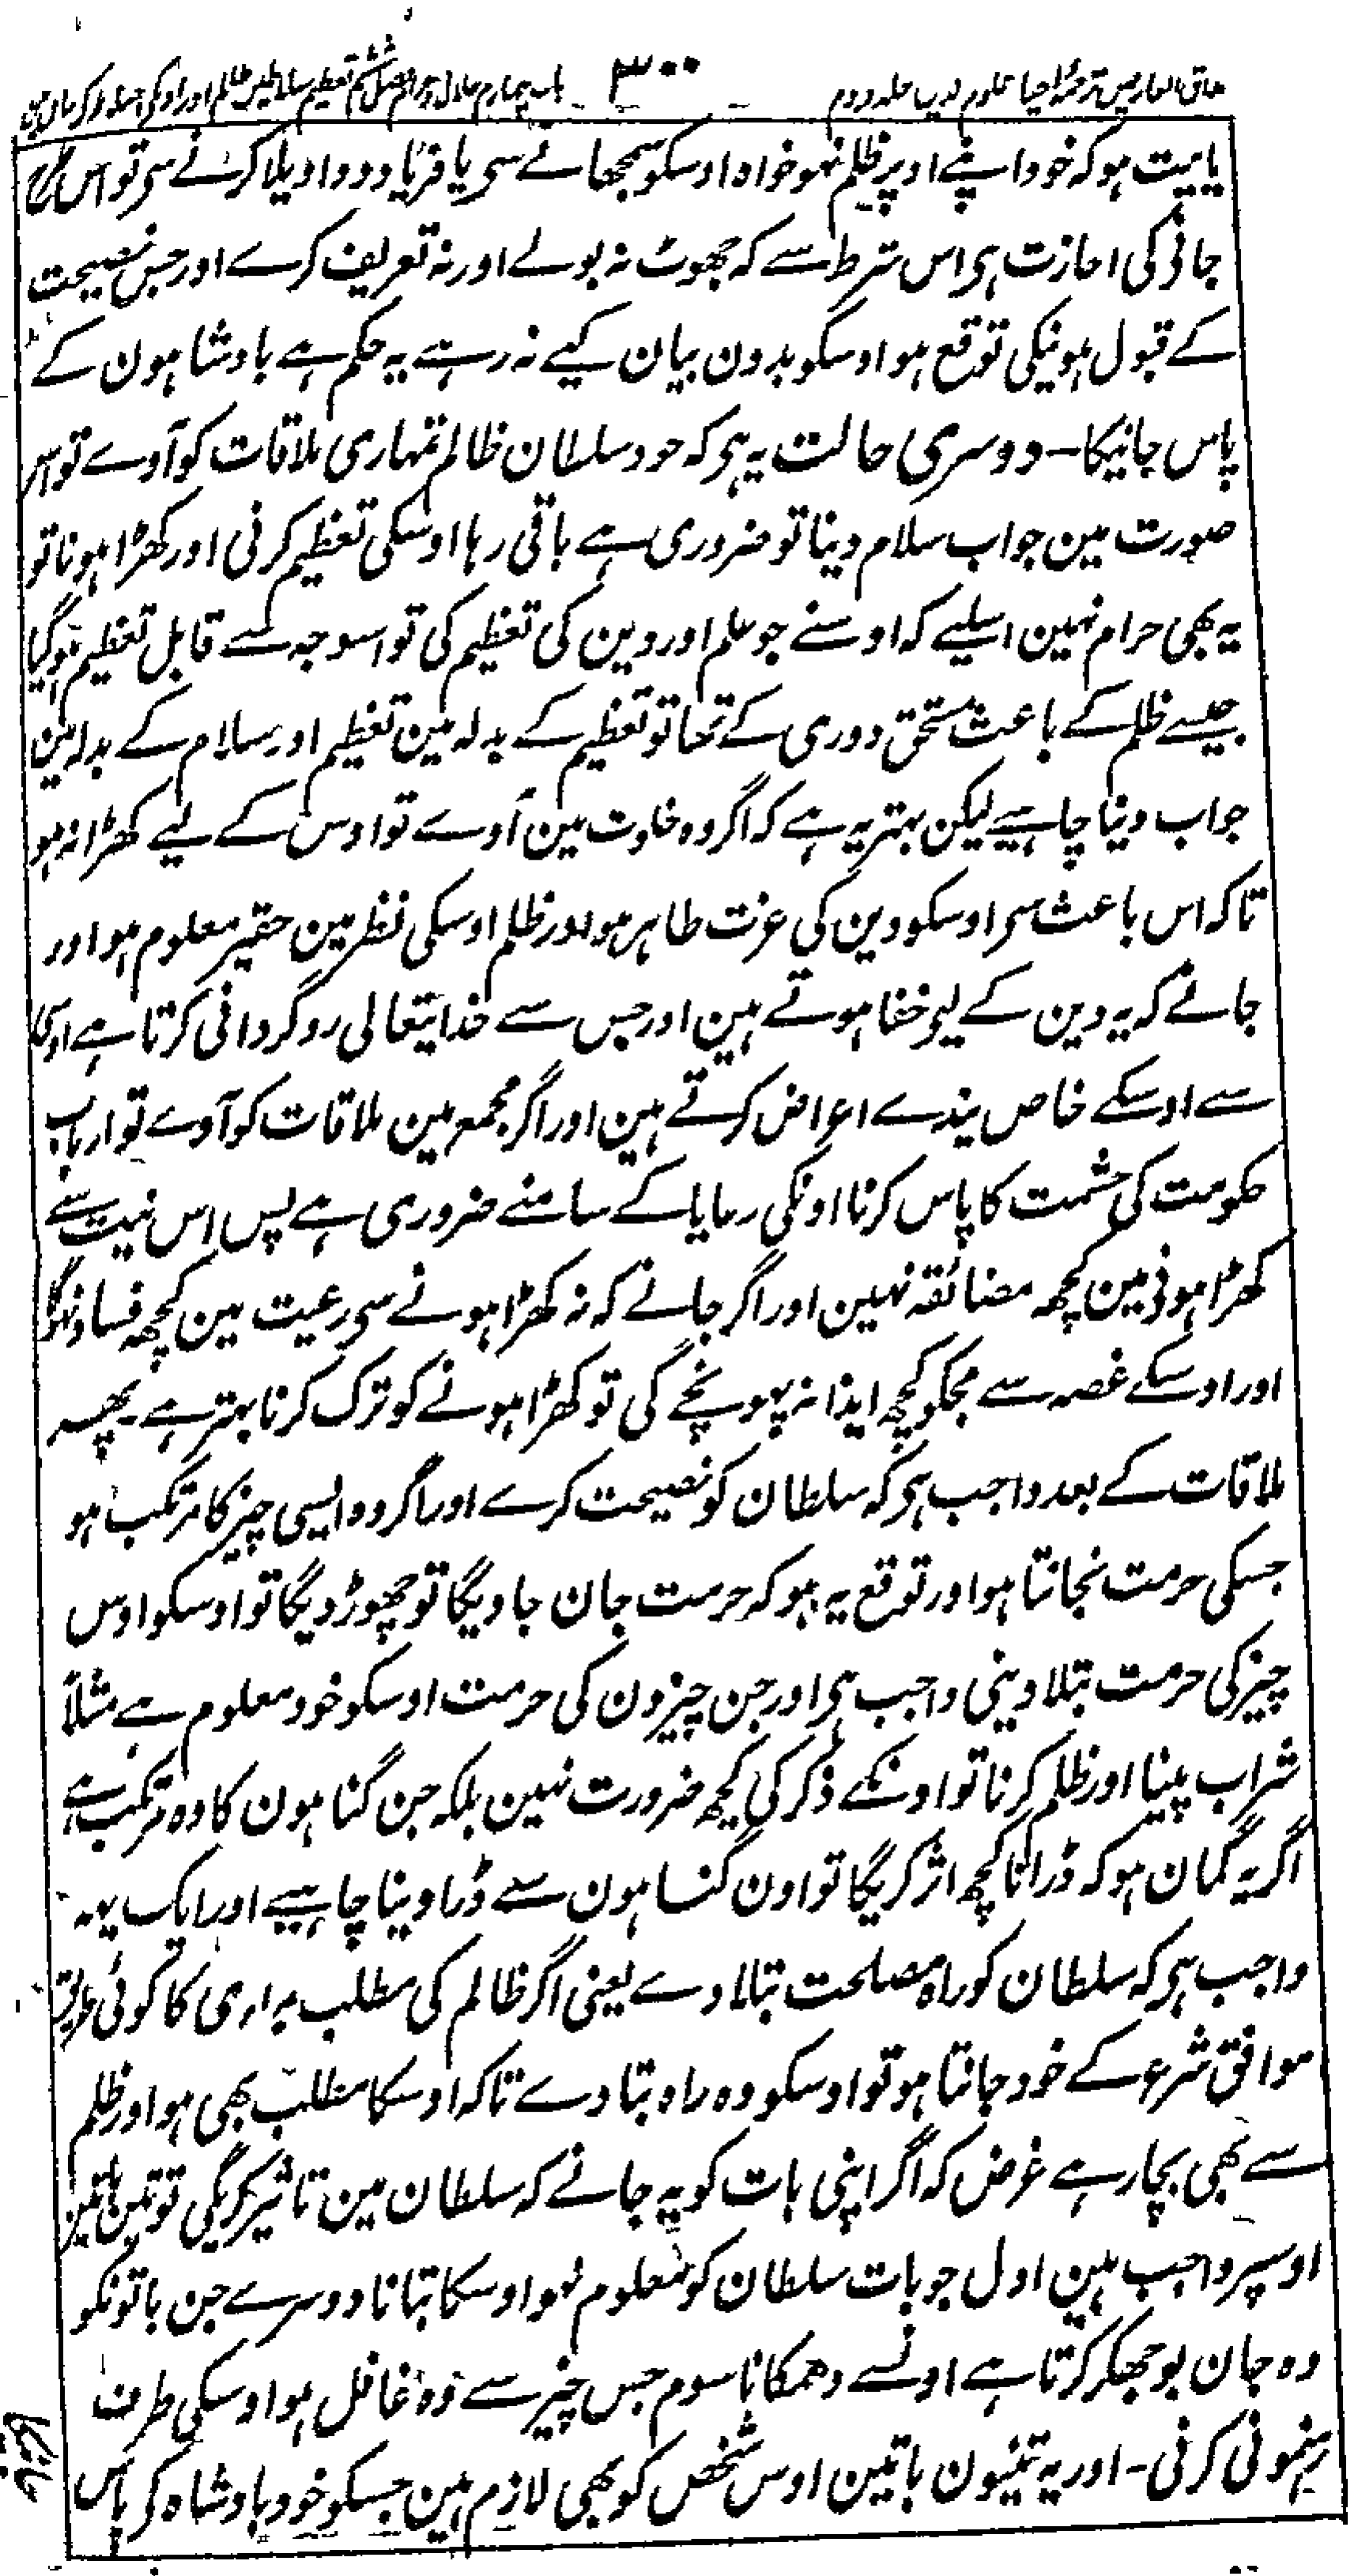 مذاق العارفین ترجمہ احیاء علوم الدین جلد دوم ۳۰۰ باب چہارم حلال و حرام فصل ششم تعظیم سلاطین ظالم اور اونکی
یا نیت ہو کہ خود اپنے اوپر ظلم نہو خواہ اوسکو سمجھانے سی یا فریاد و واویلا کرنے سی تو اس طرح
جانی کی اجازت ہی اس شرط سے کہ جھوٹ نہ بولے اور نہ تعریف کرے اور جس نصیحت
کے قبول ہونیکی توقع ہو اوسکو بدون بیان کیے نہ رہے یہ حکم ہے بادشاہون کے
پاس جانیکا۔ دوسری حالت یہ ہی کہ خود سلطان ظالم تمہاری ملاقات کو آوے تو اس
صورت مین جواب سلام دینا تو ضروری ہے باقی رہا اوسکی تعظیم کرنی اور کھڑا ہونا تو
یہ بھی حرام نہین اسلیے کہ اوسنے جو علم اور دین کی تعظیم کی تو اسوجہ سے قابل تعظیم ہوگیا
جیسے ظلم کے باعث مستحق دوری کے تھا تو تعظیم کے بدلہ مین تعظیم اور سلام کے بدلہ مین
جواب دینا چاہیے لیکن بہتر یہ ہے کہ اگر وہ خلوت مین آوے تو اوس کے لیے کھڑا نہ ہو
تاکہ اس باعث سی اوسکو دین کی عزت ظاہر ہو اور ظلم اوسکی نظر مین حقیر معلوم ہو اور
جانے کہ یہ دین کے لیی خفا ہوتے ہین اور جس سے خدایتعالی روگردانی کرتا ہے
سے اوسکے خاص بندے اعراض کرتے ہین اور اگر مجمع مین ملاقات کو آوے تو ارباب
حکومت کی حشمت کا پاس کرنا اونکی رعایا کے سامنے ضروری ہے پس اس نیت سے
کھڑا ہونی مین کچھ مضائقہ نہین اور اگر جانے کہ نہ کھڑا ہونے سی رعیت مین کچھ فساد نہوگا
اور اوسکے غصہ سے مجکو کچھ ایذا نہ پہونچے گی تو کھڑا ہونے کو ترک کرنا بہتر ہے۔ پھر
ملاقات کے بعد واجب ہی کہ سلطان کو نصیحت کرے اور اگر وہ ایسی چیز کا مرتکب ہو
جسکی حرمت نجانتا ہو اور توقع یہ ہو کہ حرمت جان جاویگا تو چھوڑ دیگا تو اوسکو اوس
چیز کی حرمت بتلا دینی واجب ہی اور جن چیزون کی حرمت اوسکو خود معلوم ہے مثلاً
شراب پینا اور ظلم کرنا تو اونکے ذکر کی کچھ ضرورت نہین بلکہ جن گناہون کا وہ مرتکب ہے
اگر یہ گمان ہو کہ ڈرانا کچھ اثر کریگا تو اون گناہون سے ڈرا دینا چاہیے اور ایک یہ
واجب ہی کہ سلطان کو راہ مصلحت بتلا دے یعنی اگر ظالم کی مطلب براری کا کوئی طریق
موافق شرع کے خود جانتا ہو تو اوسکو وہ راہ بتا دے تاکہ اوسکا مطلب بھی ہو اور ظلم
سے بھی بچا رہے غرض کہ اگر اپنی بات کو یہ جانے کہ سلطان مین تاثیر کریگی تو تین باتین
اوسپر واجب ہین اول جو بات سلطان کو معلوم نہو اوسکا بتانا دوسرے جن باتونکو
وہ جان بوجھکر کرتا ہے اونسے دھمکانا سوم جس چیز سے وہ غافل ہو اوسکی طرف
رہنمونی کرنی۔ اور یہ تینون باتین اوس شخص کو بھی لازم ہین جسکو خود بادشاہ کی پاس